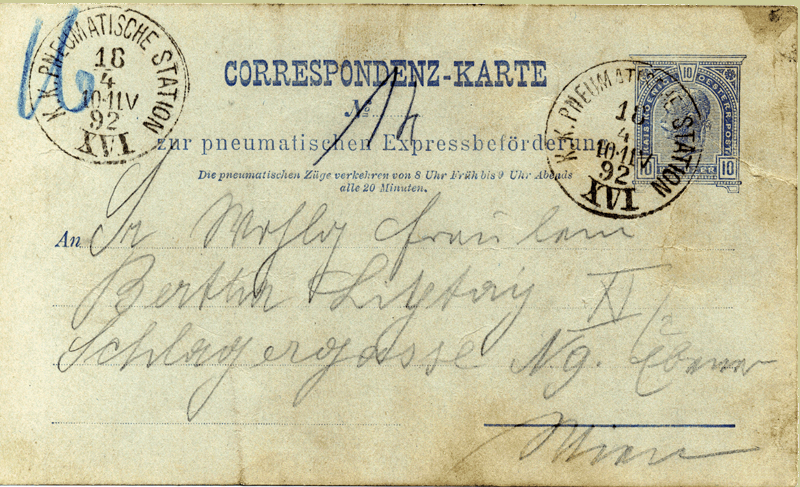 K.K. PNEUMATISCHE STATION
18
4
10-11V
92
XVI
16
CORRESPONDENZ-KARTE
№ 14
zur pneumatischen Expressbeförderung
Die pneumatischen Züge verkehren von 8 Uhr Früh bis 9 Uhr Abends
alle 20 Minuten.
KAIS. KOENIGL. 10 OESTERR. POST
10 10
K.K. PNEUMATISCHE STATION
18
4
10-11V
92
XVI
An Sr Wohlg Fräulein
Bertha XI/2
Schlagergasse
Wien